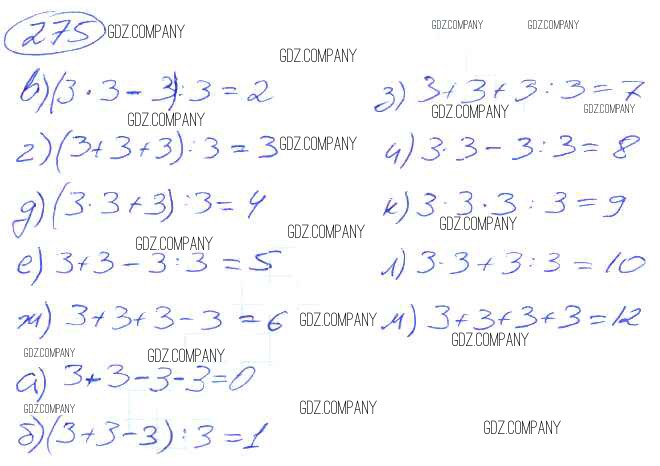 275 GDZ.COMPANY GDZ.COMPANY GDZ.COMPANY
GDZ.COMPANY
в) (3 · 3 - 3) : 3 = 2
з) 3 + 3 + 3 : 3 = 7
GDZ.COMPANY GDZ.COMPANY GDZ.COMPANY
г) (3 + 3 + 3) : 3 = 3 GDZ.COMPANY
и) 3 · 3 - 3 : 3 = 8
д) (3 · 3 + 3) : 3 = 4
к) 3 · 3 · 3 : 3 = 9
GDZ.COMPANY GDZ.COMPANY GDZ.COMPANY
е) 3 + 3 - 3 : 3 = 5
л) 3 · 3 + 3 : 3 = 10
ж) 3 + 3 + 3 - 3 = 6 GDZ.COMPANY
м) 3 + 3 + 3 + 3 = 12
GDZ.COMPANY GDZ.COMPANY GDZ.COMPANY
а) 3 + 3 - 3 - 3 = 0
GDZ.COMPANY GDZ.COMPANY
б) (3 + 3 - 3) : 3 = 1
GDZ.COMPANY